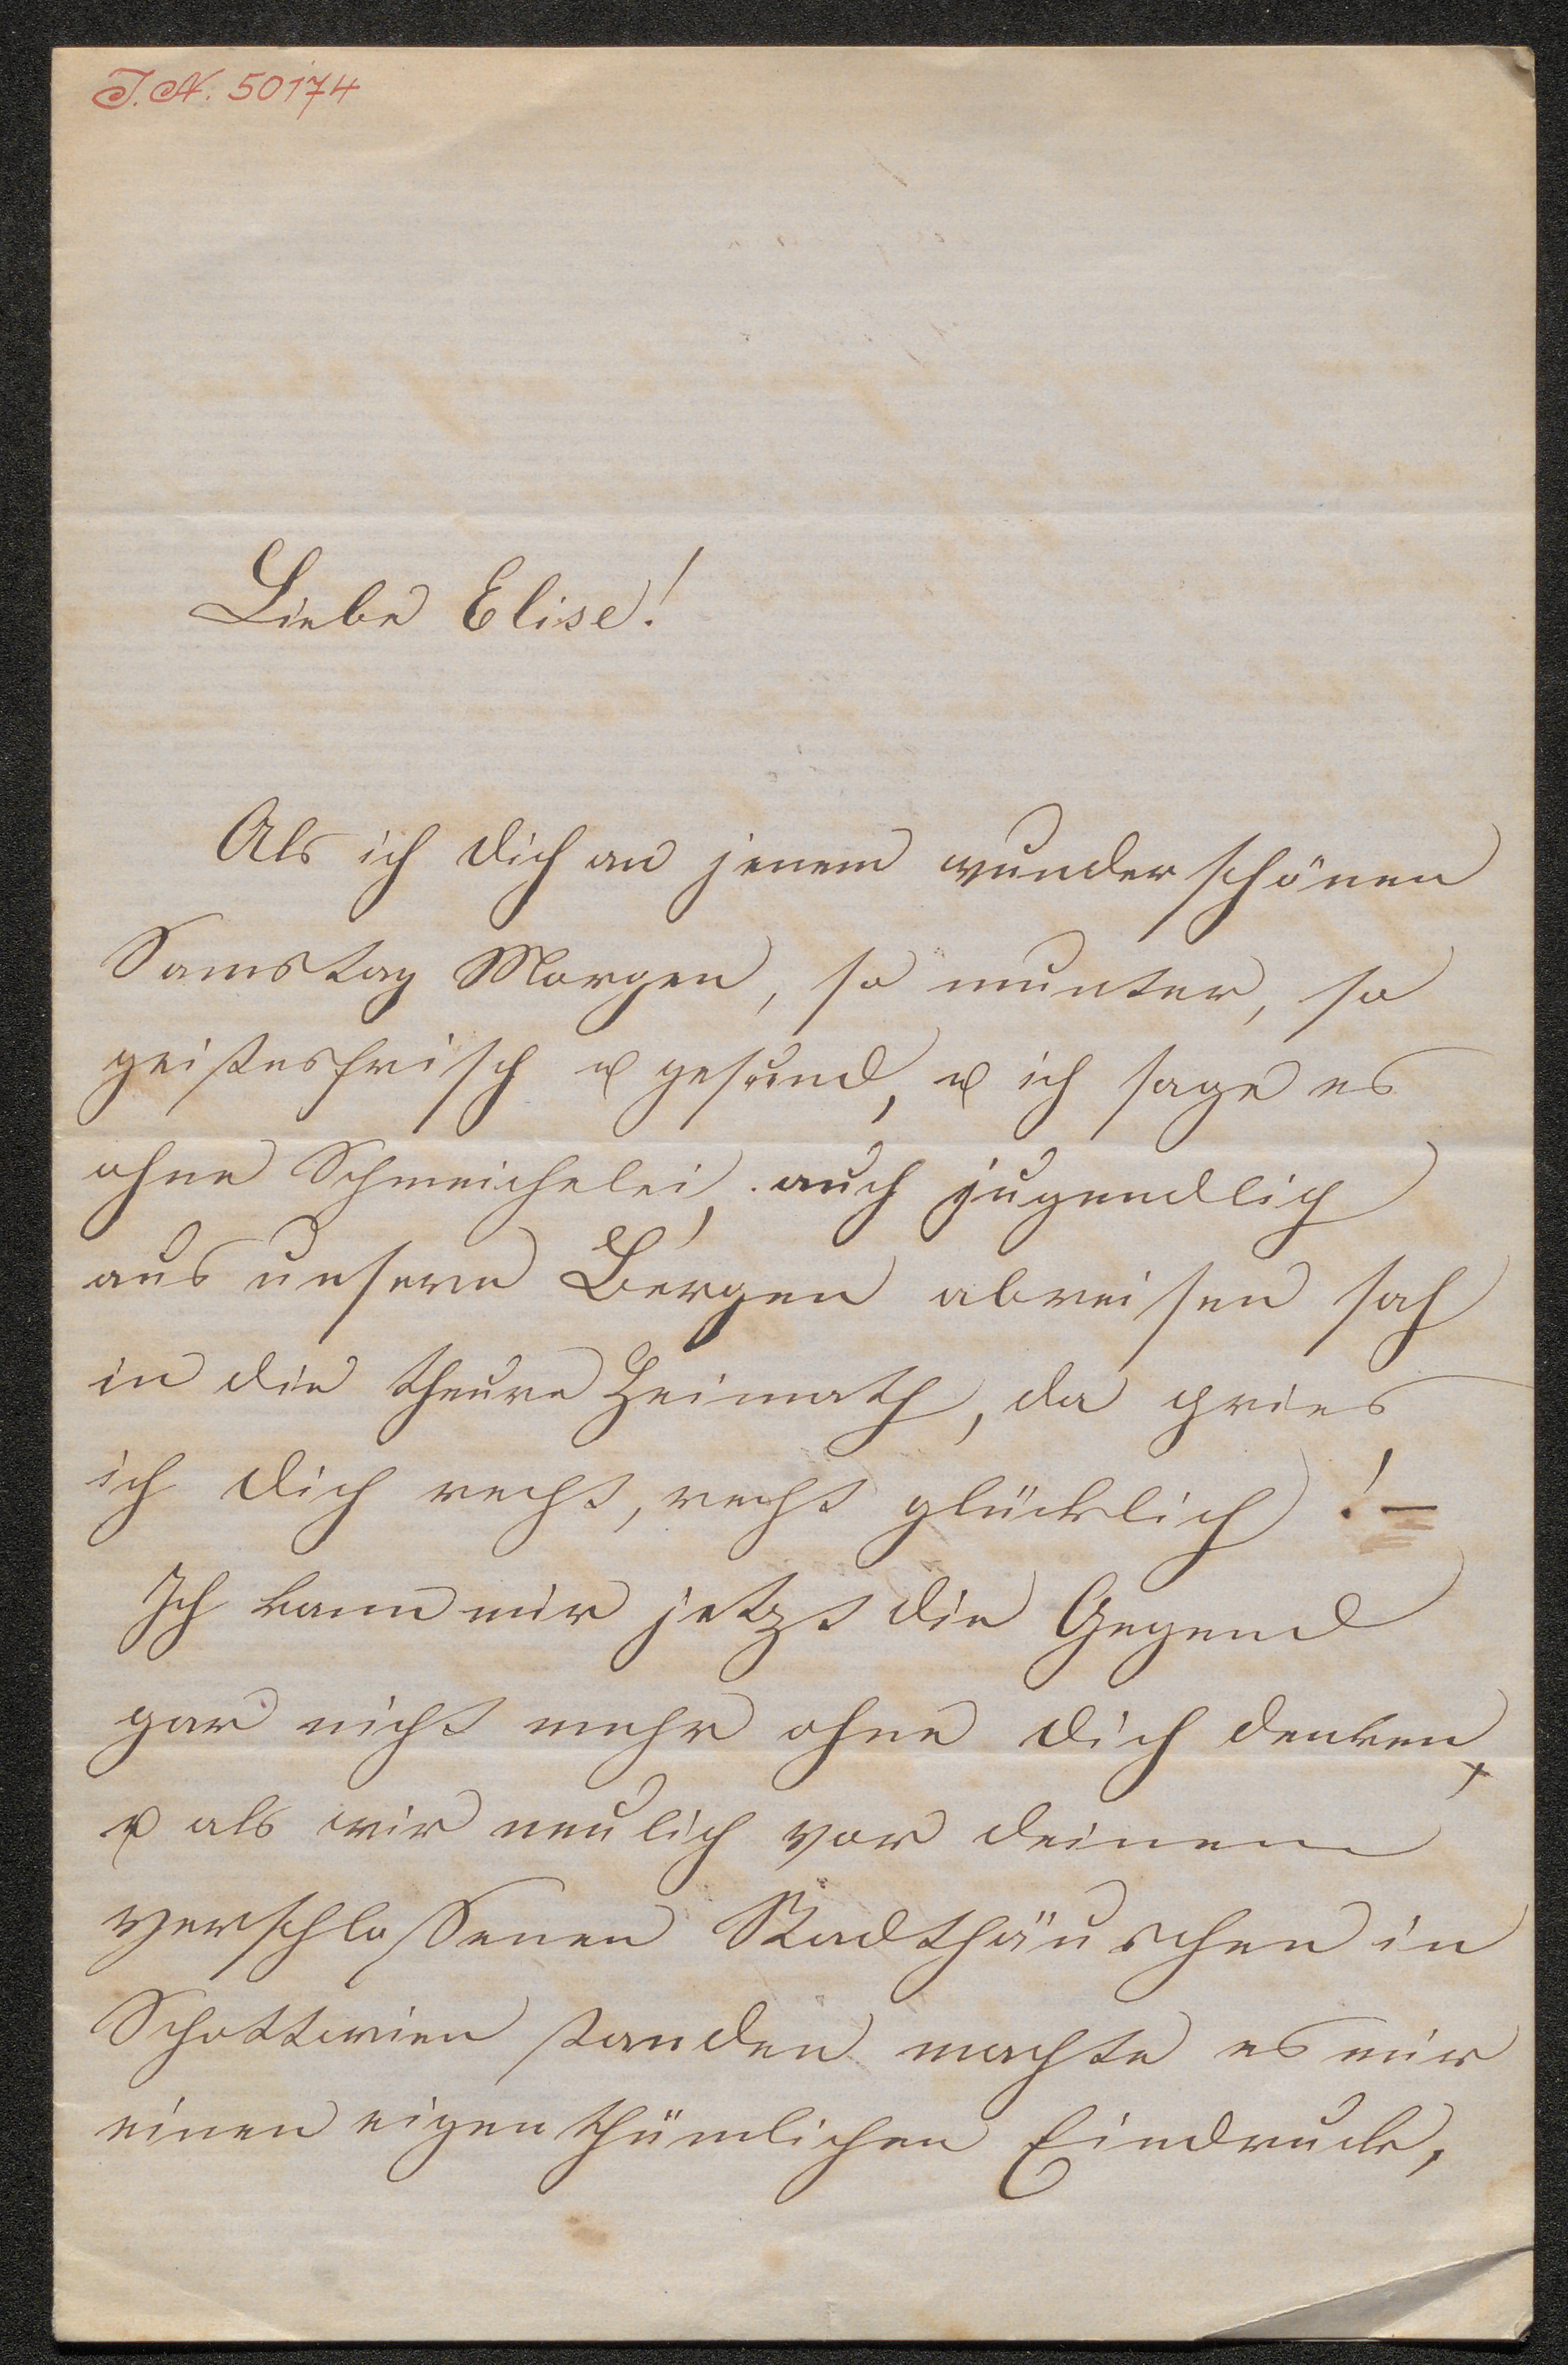 J.N. 50174
Liebe Elise!
Als ich dich an jenem wunderschönen
Samstag Morgen, so munter, so
geistesfrisch u gesund, u ich sage es
ohne Schmeichelei, auch jugendlich
aus unsern Bergen abreisen sah
in die theure Heimath, da pries
ich dich recht, recht glücklich! –
Ich kann mir jetzt die Gegend
gar nicht mehr ohne dich denken,
u als wir neulich vor deinem
verschlossenen Stadthäuschen in
Schottwien standen machte es mir
einen eigenthümlichen Eindruck,